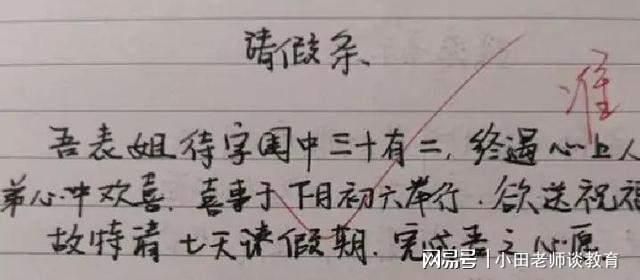 请假条
准
吾表姐待字闺中三十有二,终遇心上人
弟心中欢喜,喜事于下月初六举行,欲送祝福
故特请七天课假期,完成吾之心愿
网易号 | 小田老师谈教育